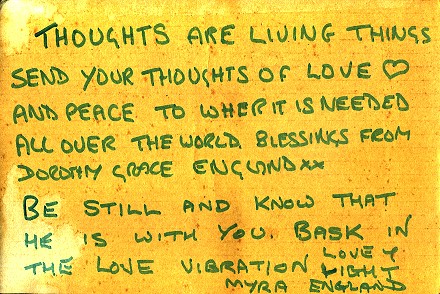 THOUGHTS ARE LIVING THINGS
SEND YOUR THOUGHTS OF LOVE ♡
AND PEACE TO WHER IT IS NEEDED
ALL OVER THE WORLD. BLESSINGS FROM
DOROTHY GRACE ENGLAND xx
BE STILL AND KNOW THAT
HE IS WITH YOU. BASK IN
THE LOVE VIBRATION LOVE Y
LIGHT
MYRA ENGLAND